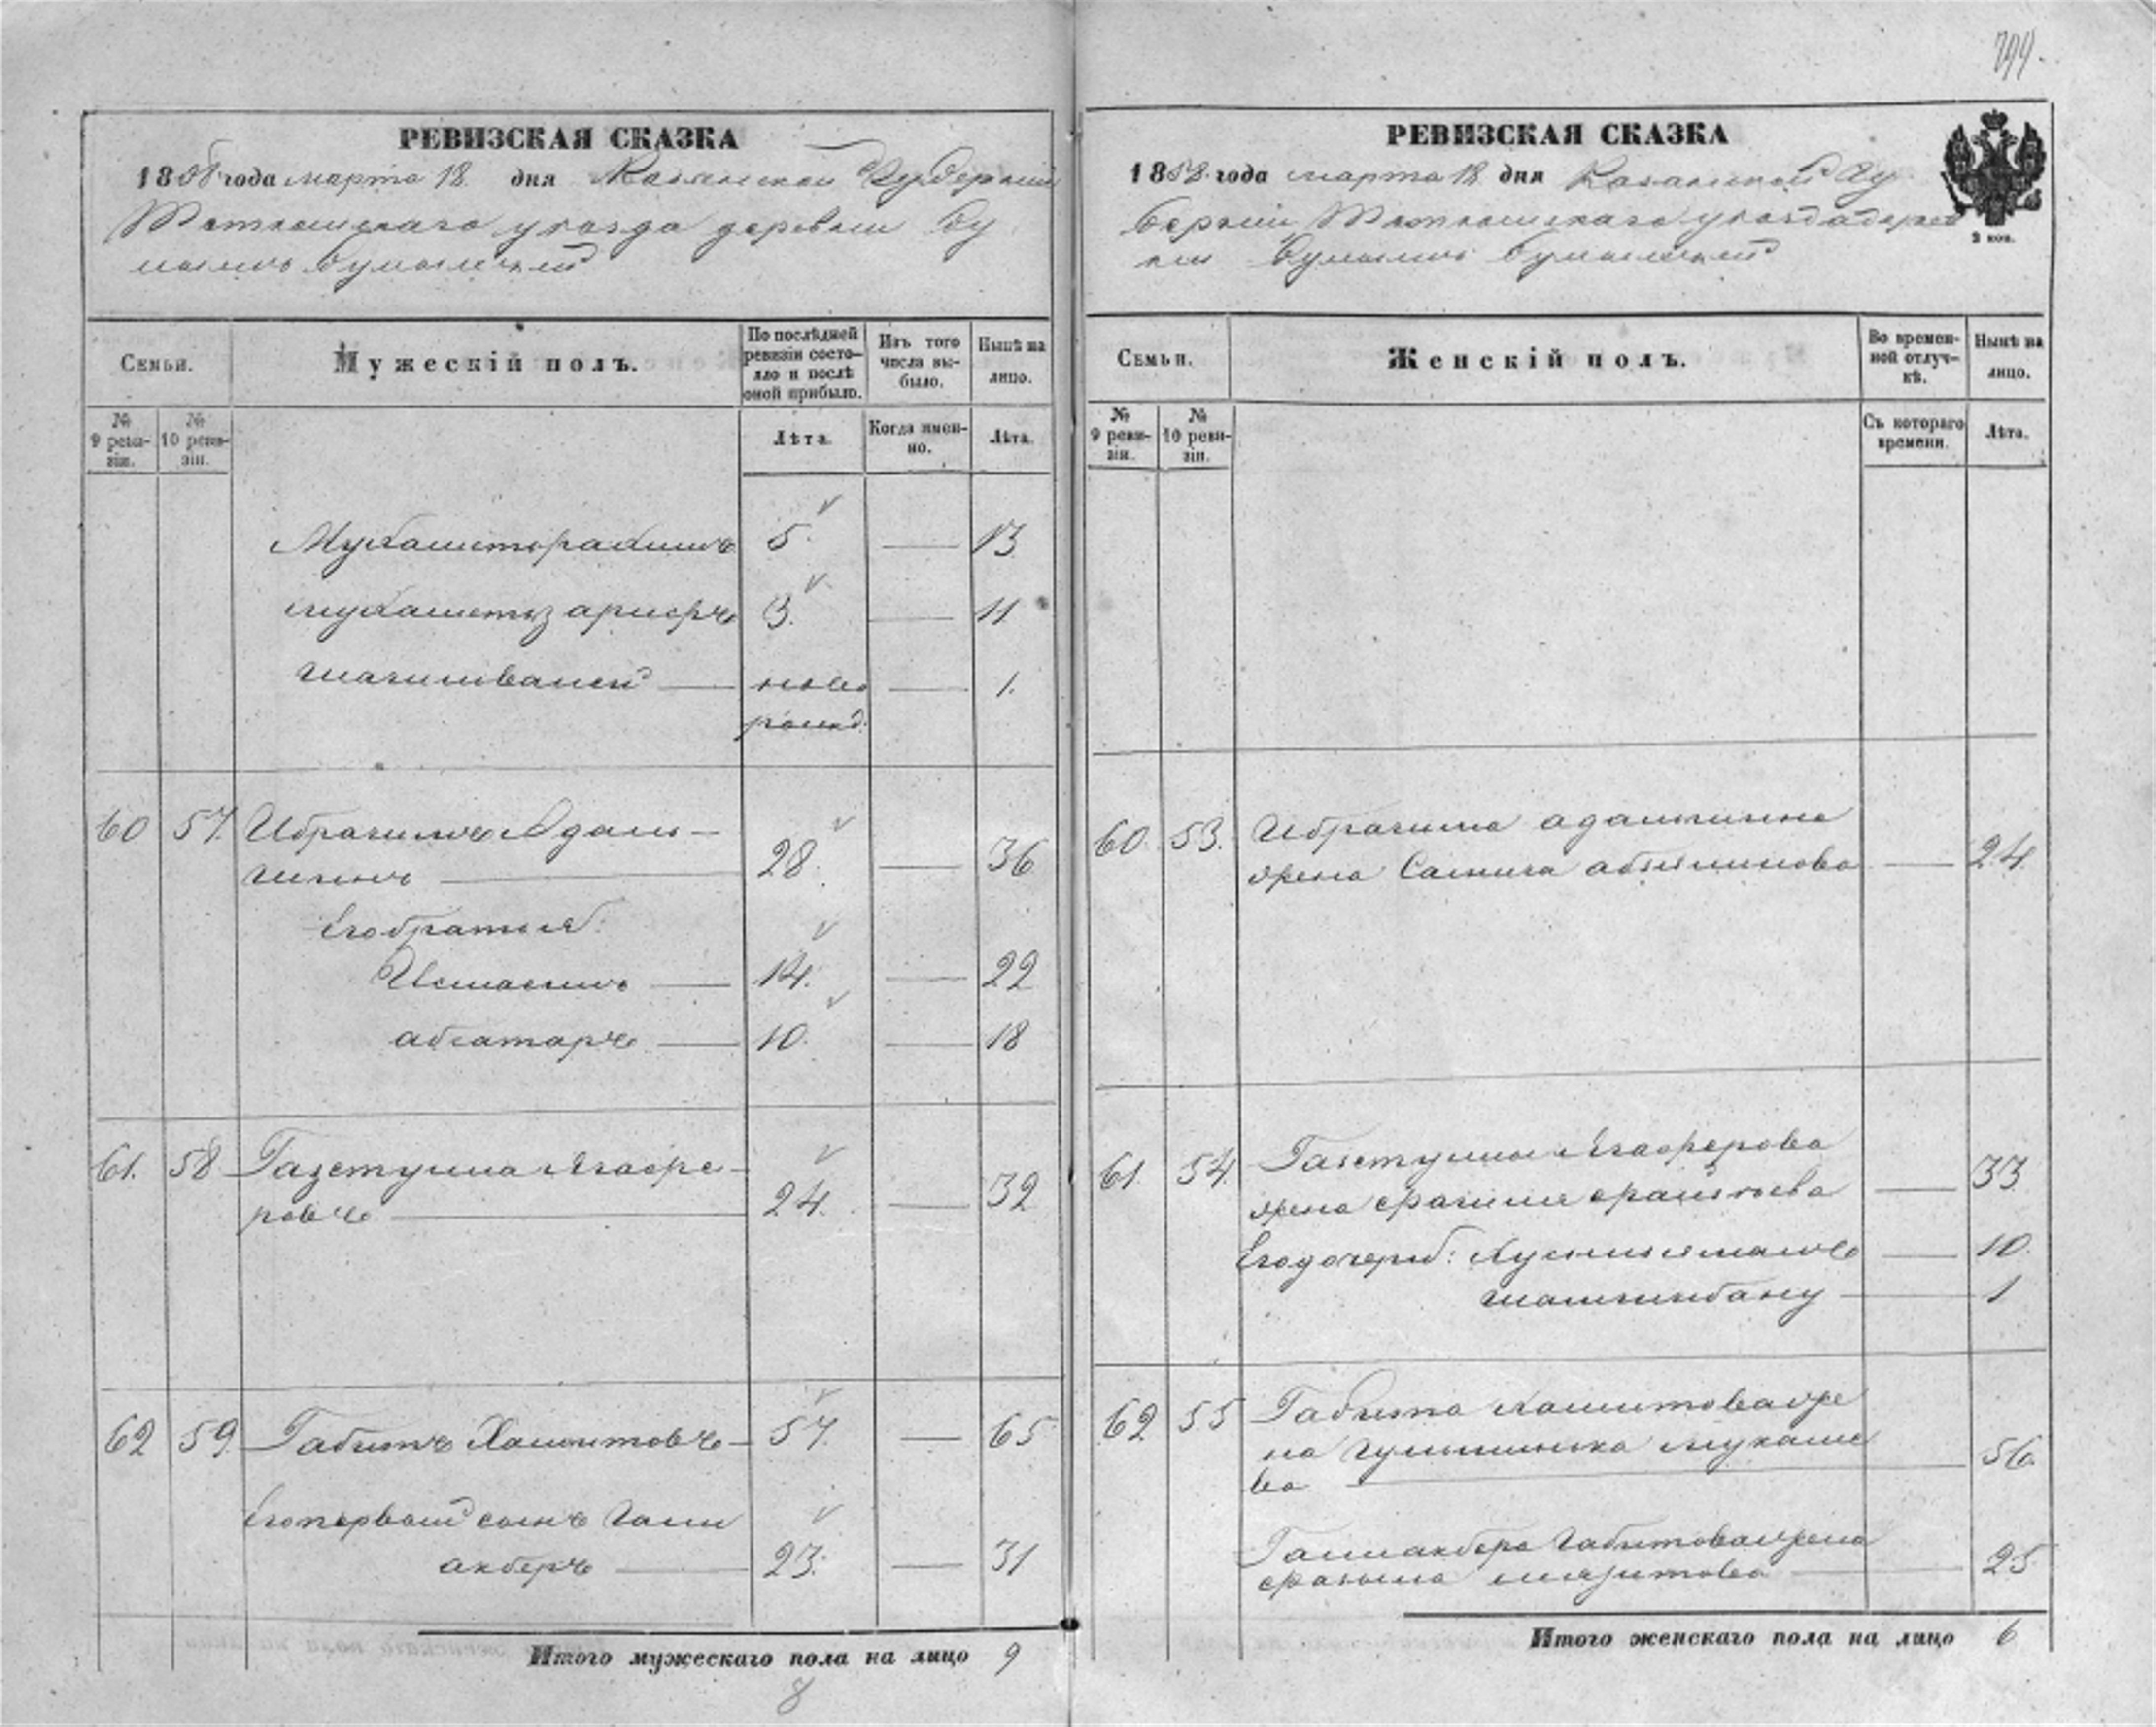 799.
РЕВИЗСКАЯ СКАЗКА
1858 года марта 18. дня Казанской Губернии
Тетюшскаго уезда деревни Бу
РЕВИЗСКАЯ СКАЗКА
1858. года марта 18 дня Казанской Гу
бернии Тетюшскаго уезда дерев
ни
2 коп.
Семьи.
Мужескій полъ.
По послѣдней ревизіи состояло и послѣ оной прибыло.
Изъ того числа выбыло.
Нынѣ на лицо.
№ 9 ревизіи.
№ 10 ревизіи.
Лѣта.
Когда именно.
Лѣта.
Мухаметрахимъ 5. — 13
Мухаметзарифъ 3. — 11
— ново — 1.
рожд.
60 57. Ибрагимъ Адам-
гинъ — 28. — 36
Его братья:
Исмаилъ — 14. — 22
абсатаръ — 10. — 18
61. 58 Агафе-
ровъ — 24. — 32
62 59. Габитъ Хамитовъ — 57. — 65
Его первый сынъ Гали
акберъ — 23. — 31
Итого мужескаго пола на лицо 9
8
Семьи.
Женскій полъ.
Во временной отлучкѣ.
Нынѣ на лицо.
№ 9 ревизіи.
№ 10 ревизіи.
Съ котораго времени.
Лѣта.
60. 53. Ибрагима адамгина
жена — 24.
61. 54. Агаферова
жена — 33
Его дочери: — 10.
бану — 1
62 55 Габита Хамитова же
на
ва — 56.
Галиакбера Габитова жена
— 25
Итого женскаго пола на лицо 6